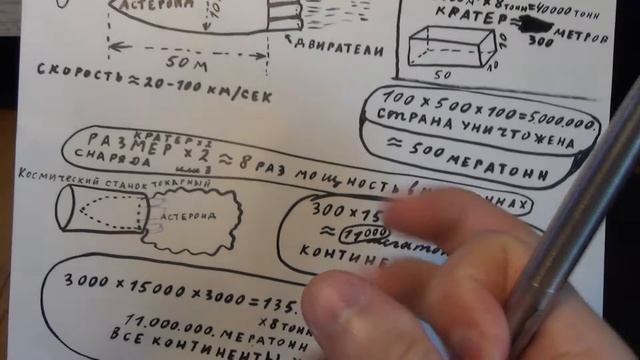 АСТЕРОИД
50 М
ДВИГАТЕЛИ
СКОРОСТЬ ≈ 20-100 КМ/СЕК
х 8 тонн = 40000 ТОНН
КРАТЕР ≈
300 МЕТРОВ
50
10
10
100 х 500 х 100 = 5.000.000.
СТРАНА УНИЧТОЖЕНА
≈ 500 МЕГАТОНН
КРАТЕР х 2
РАЗМЕР х 2 ≈ 8 РАЗ МОЩНОСТЬ В
СНАРЯДА ИЛИ 3
Космический СТАНОК ТОКАРНЫЙ
АСТЕРОИД
300 х 15
≈ 11000
3000 х 15000 х 3000 = 135.
х 8 ТОНН
11.000.000. МЕГАТОНН
ВСЕ КОНТИНЕНТЫ